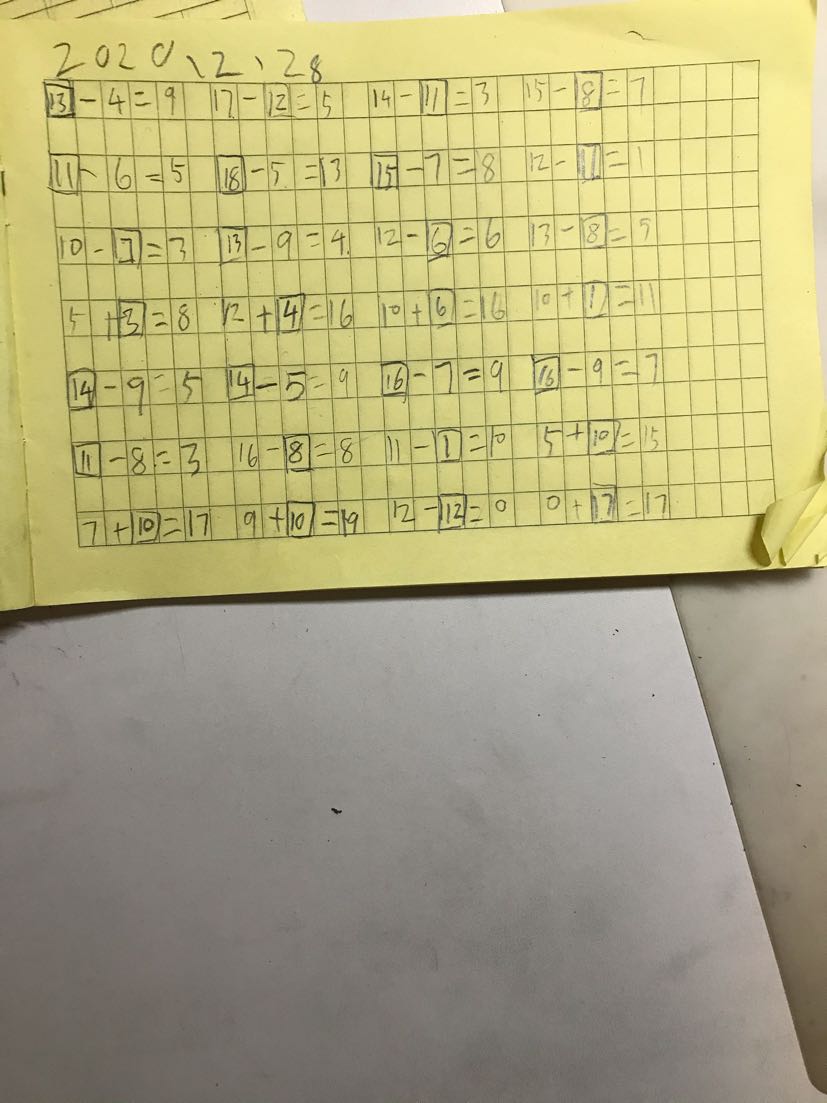 2020、2、28
13-4=9 17-12=5 14-11=3 15-8=7
11-6=5 18-5=13 15-7=8 12-11=1
10-7=3 13-9=4 12-6=6 13-8=5
5+3=8 12+4=16 10+6=16 10+1=11
14-9=5 14-5=9 16-7=9 16-9=7
11-8=3 16-8=8 11-1=10 5+10=15
7+10=17 9+10=19 12-12=0 0+17=17